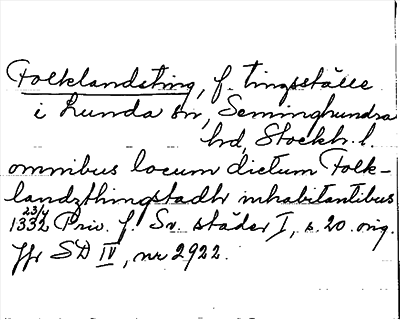 Folklandsting, f. tingsställe
i Lunda sn, Seminghundra
hd, Stockh. l.
omnibus locum dictum Folk-
landzthingstadh inhabitantibus
23/4
1332 Priv. f. Sv. städer I, s. 20. orig.
Jfr SD IV, nr 2922.